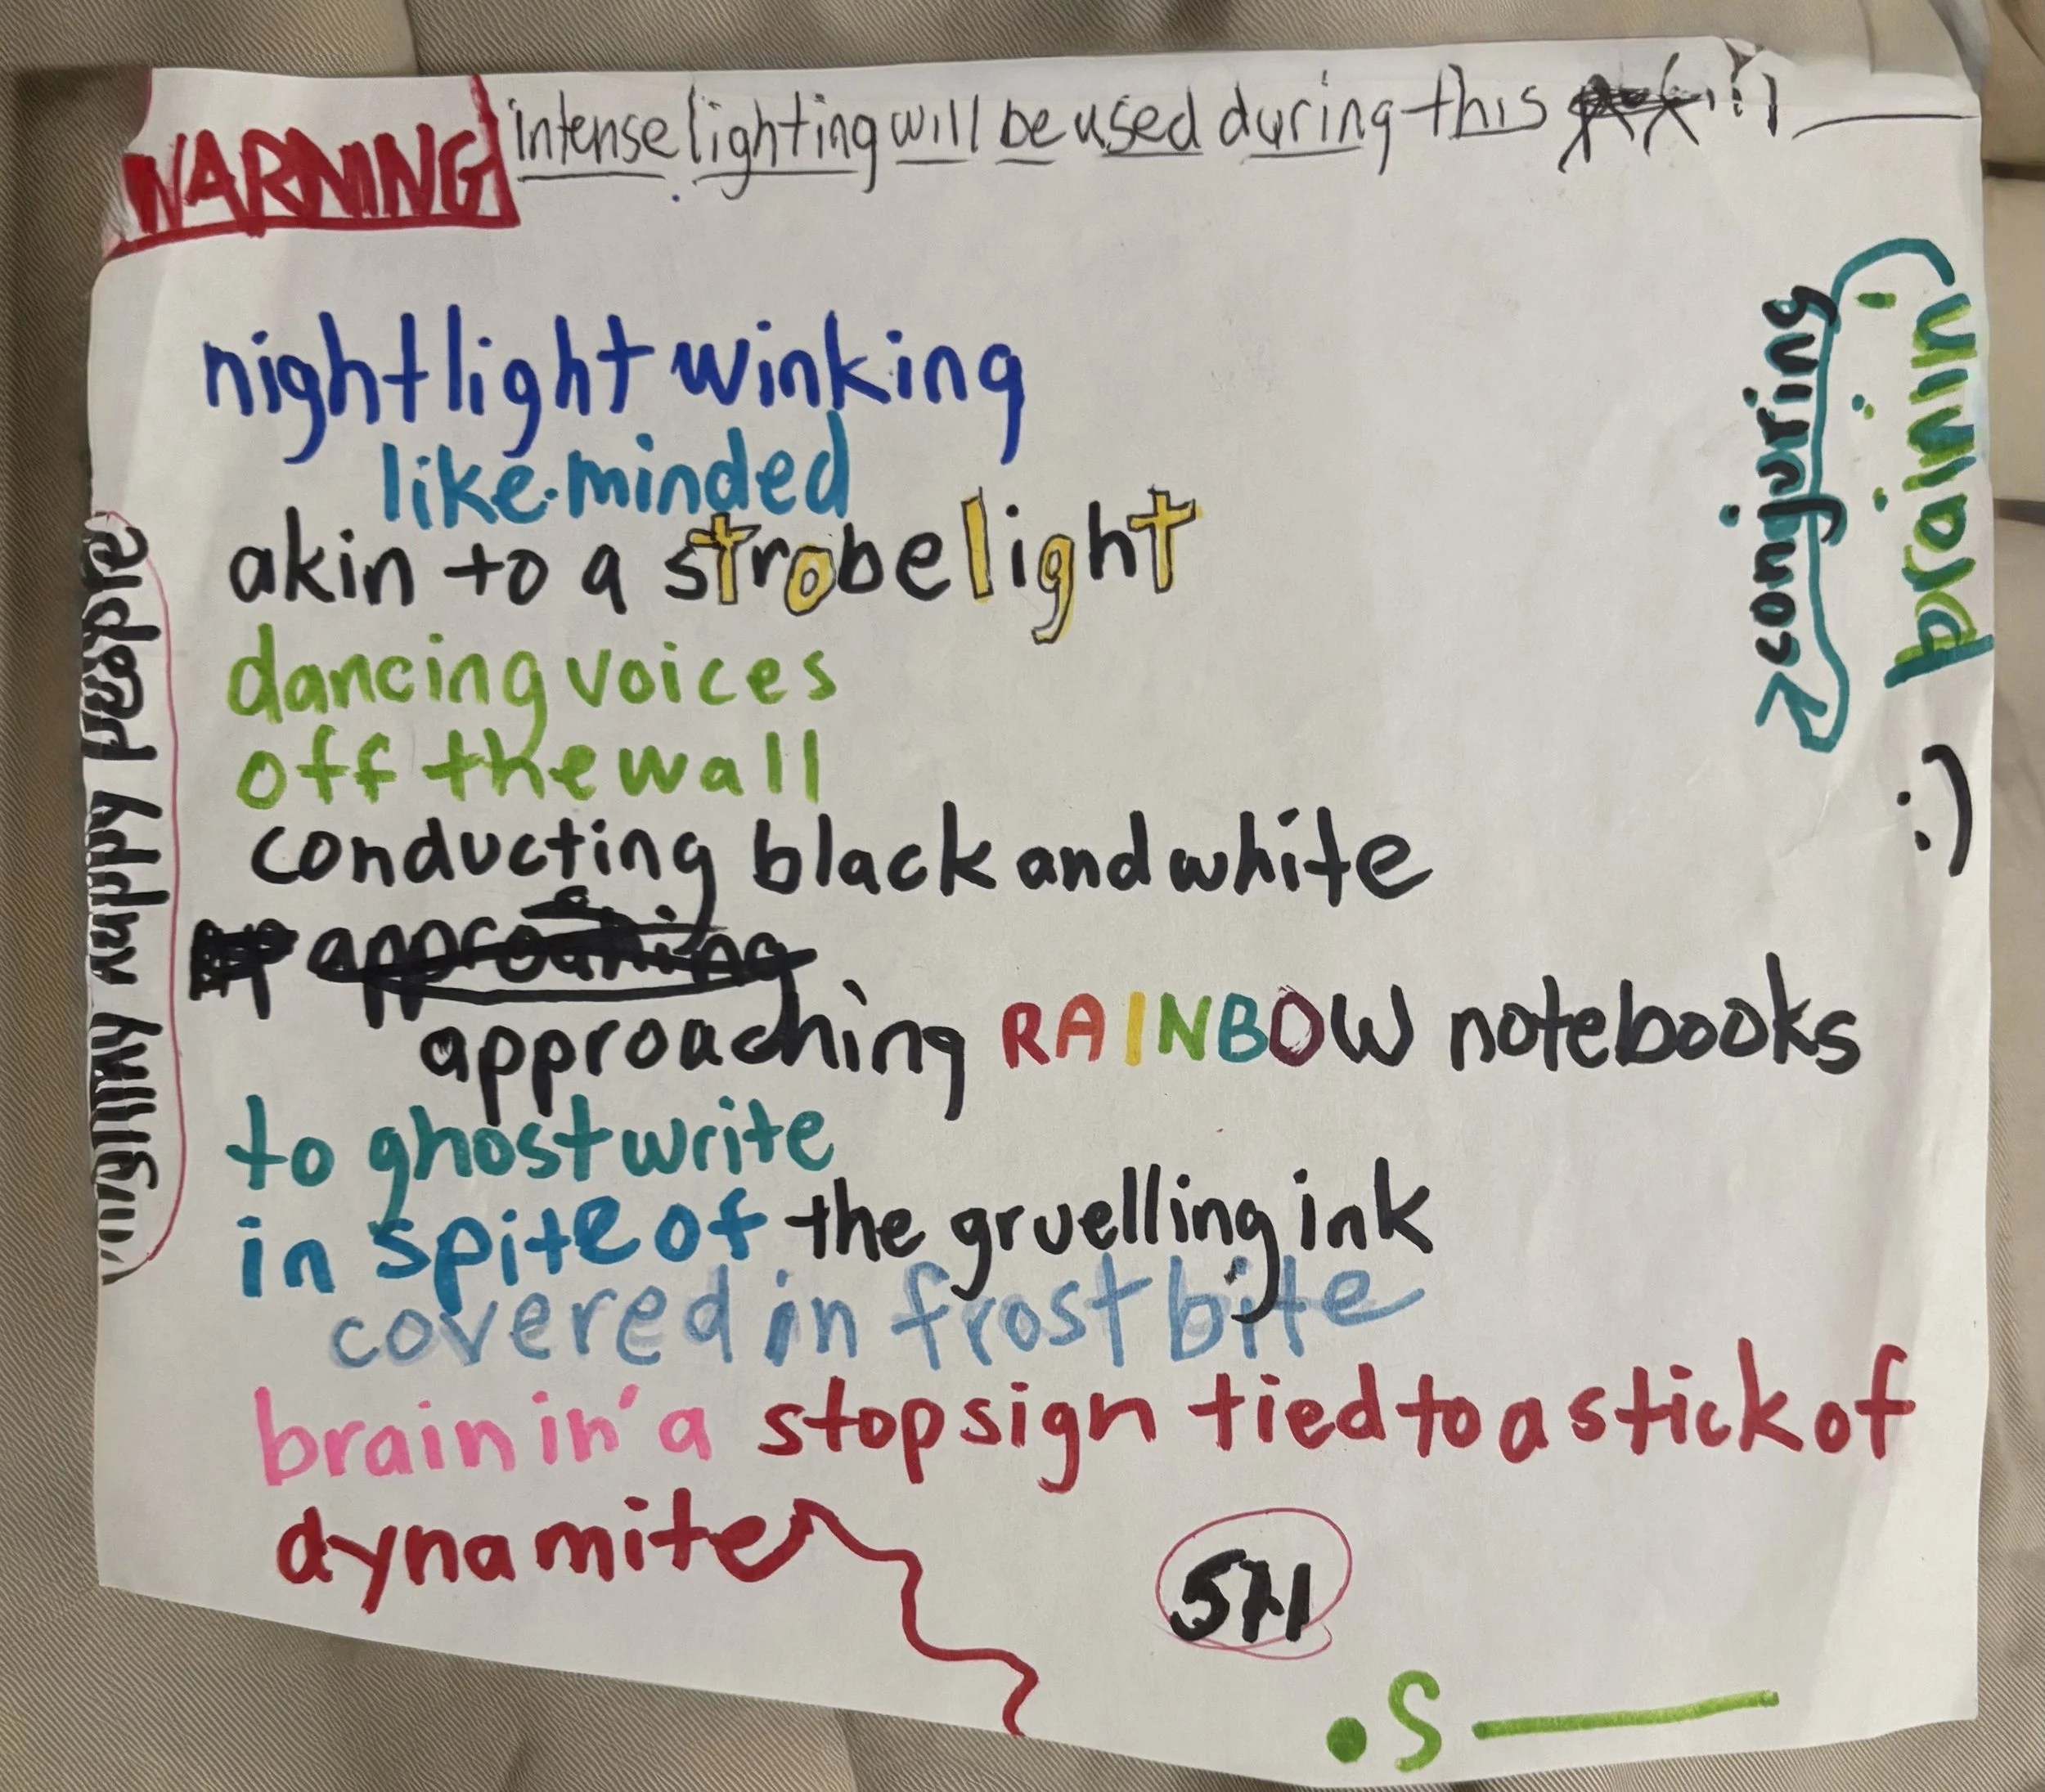 WARNING intense lighting will be used during this
nightlight winking
like-minded
akin to a strobelight
dancing voices
off the wall
conducting black and white
approaching RAINBOW notebooks
to ghostwrite
in spite of the gruelling ink
covered in frostbite
brainin' a stop sign tied to a stick of
dynamite
571
.S
happy people
conjuring
brainin'
:)